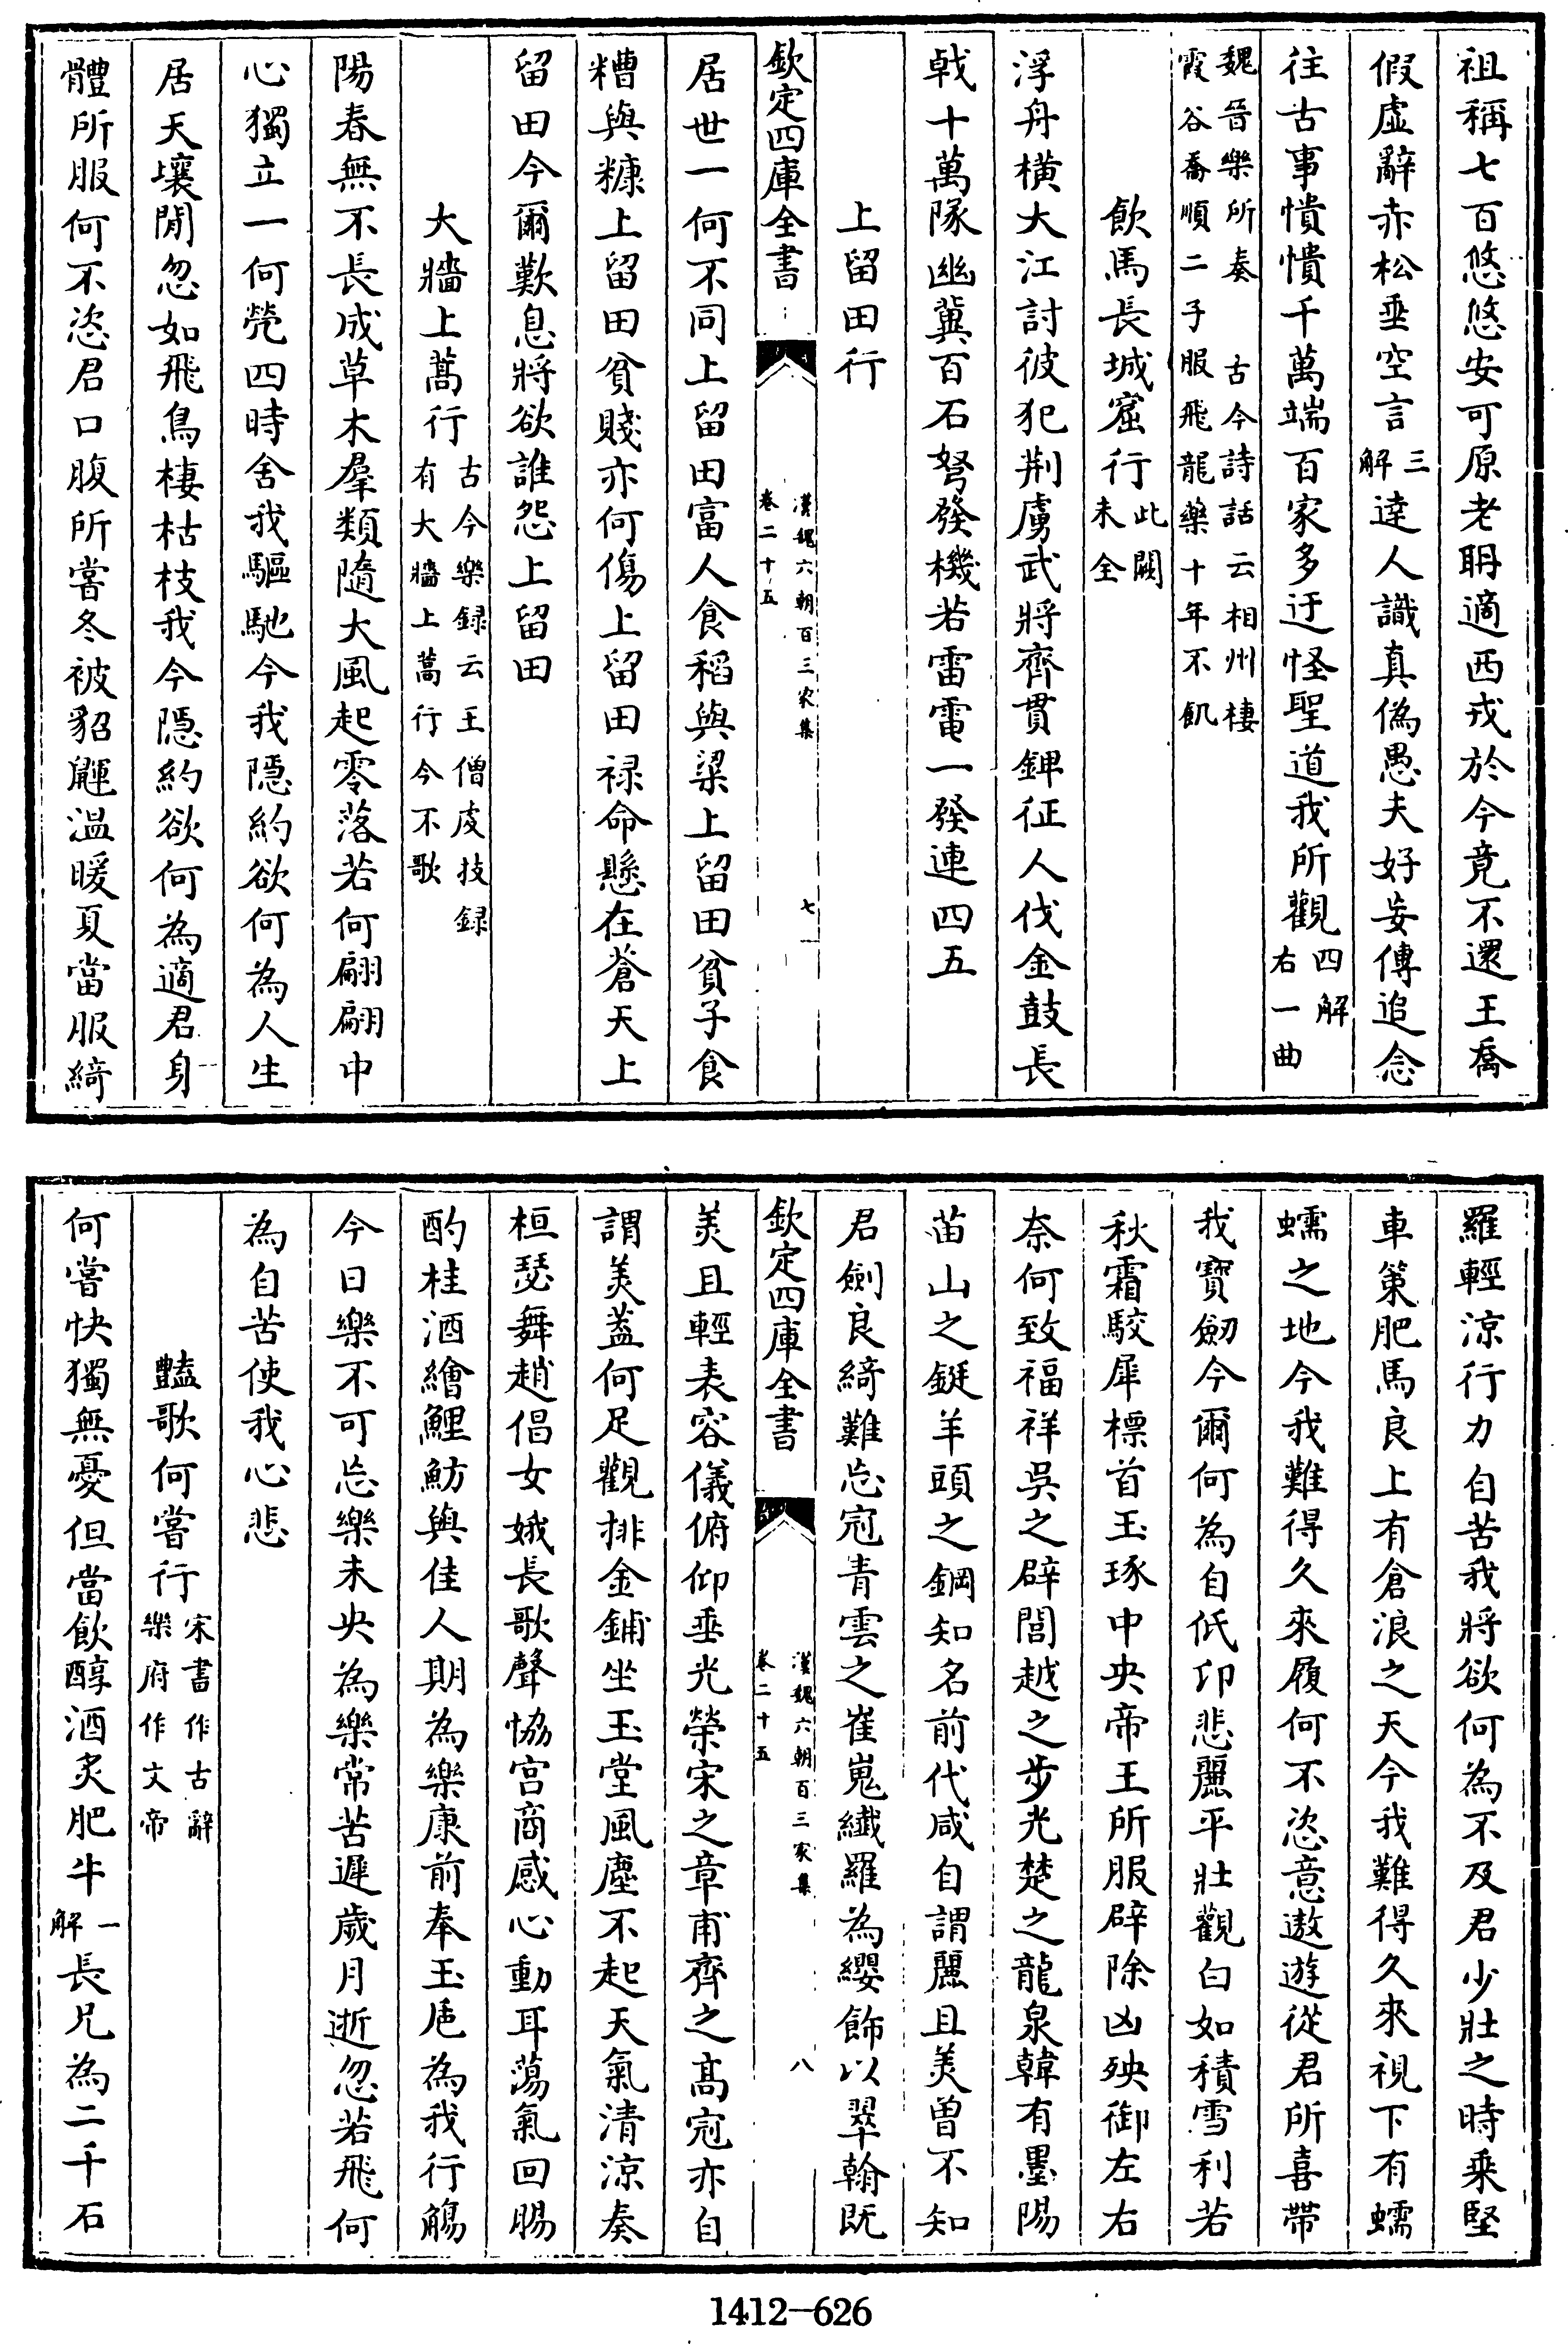 祖稱七百悠悠安可原老聃適西戎於今竟不還王喬
假虛辭赤松垂空言三解達人識真偽愚夫好妄傳追念
往古事憒憒千萬端百家多迂怪聖道我所觀四解右一曲
魏晉樂所奏　古今詩話云相州棲
霞谷喬順二子服飛龍藥十年不飢
飲馬長城窟行此闋未全
浮舟橫大江討彼犯荆虜武將齊貫錍征人伐金鼓長
戟十萬隊幽冀百石弩發機若雷電一發連四五
上留田行
欽定四庫全書
漢魏六朝百三家集
卷二十五
七
居世一何不同上留田富人食稻與粱上留田貧子食
糟與糠上留田貧賤亦何傷上留田禄命懸在蒼天上
留田今爾歎息將欲誰怨上留田
大牆上蒿行古今樂録云王僧虔技録有大牆上蒿行今不歌
陽春無不長成草木羣類隨大風起零落若何翩翩中
心獨立一何煢四時舍我驅馳今我隱約欲何為人生
居天壤閒忽如飛鳥棲枯枝我今隱約欲何為適君身
體所服何不恣君口腹所嘗冬被貂鼲温暖夏當服綺
羅輕涼行力自苦我將欲何為不及君少壯之時乘堅
車策肥馬良上有倉浪之天今我難得久來視下有蠕
蠕之地今我難得久來履何不恣意遨遊從君所喜帶
我寶劒今爾何為自低卬悲麗平壯觀白如積雪利若
秋霜駮犀標首玉琢中央帝王所服辟除凶殃御左右
奈何致福祥吳之辟閭越之步光楚之龍泉韓有墨陽
苗山之鋌羊頭之鋼知名前代咸自謂麗且美曾不知
君劍良綺難忘冠青雲之崔嵬纖羅為纓飾以翠翰既
欽定四庫全書
漢魏六朝百三家集
卷二十五
八
美且輕表容儀俯仰垂光榮宋之章甫齊之高冠亦自
謂美蓋何足觀排金鋪坐玉堂風塵不起天氣清涼奏
桓瑟舞趙倡女娥長歌聲恊宫商感心動耳蕩氣回賜
酌桂酒繪鯉魴與佳人期為樂康前奉玉巵為我行觴
今日樂不可忘樂未央為樂常苦遲歲月逝忽若飛何
為自苦使我心悲
豔歌何嘗行宋書作古辭樂府作文帝
何嘗快獨無憂但當飲醇酒炙肥牛一解長兄為二千石
1412—626